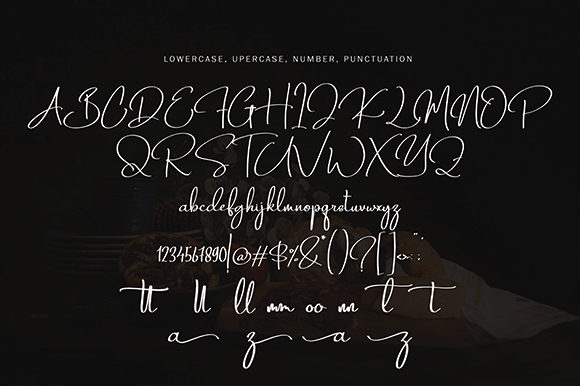 LOWERCASE, UPERCASE, NUMBER, PUNCTUATION
ABCDEFGHIJKLMNOP
QRSTUVWXYZ
abcdefghijklmnopqrstuvwxyz
1234567890!@#$%&*()?[]<>:;"',.
tt ll ll mm oo nn t t
a z a z